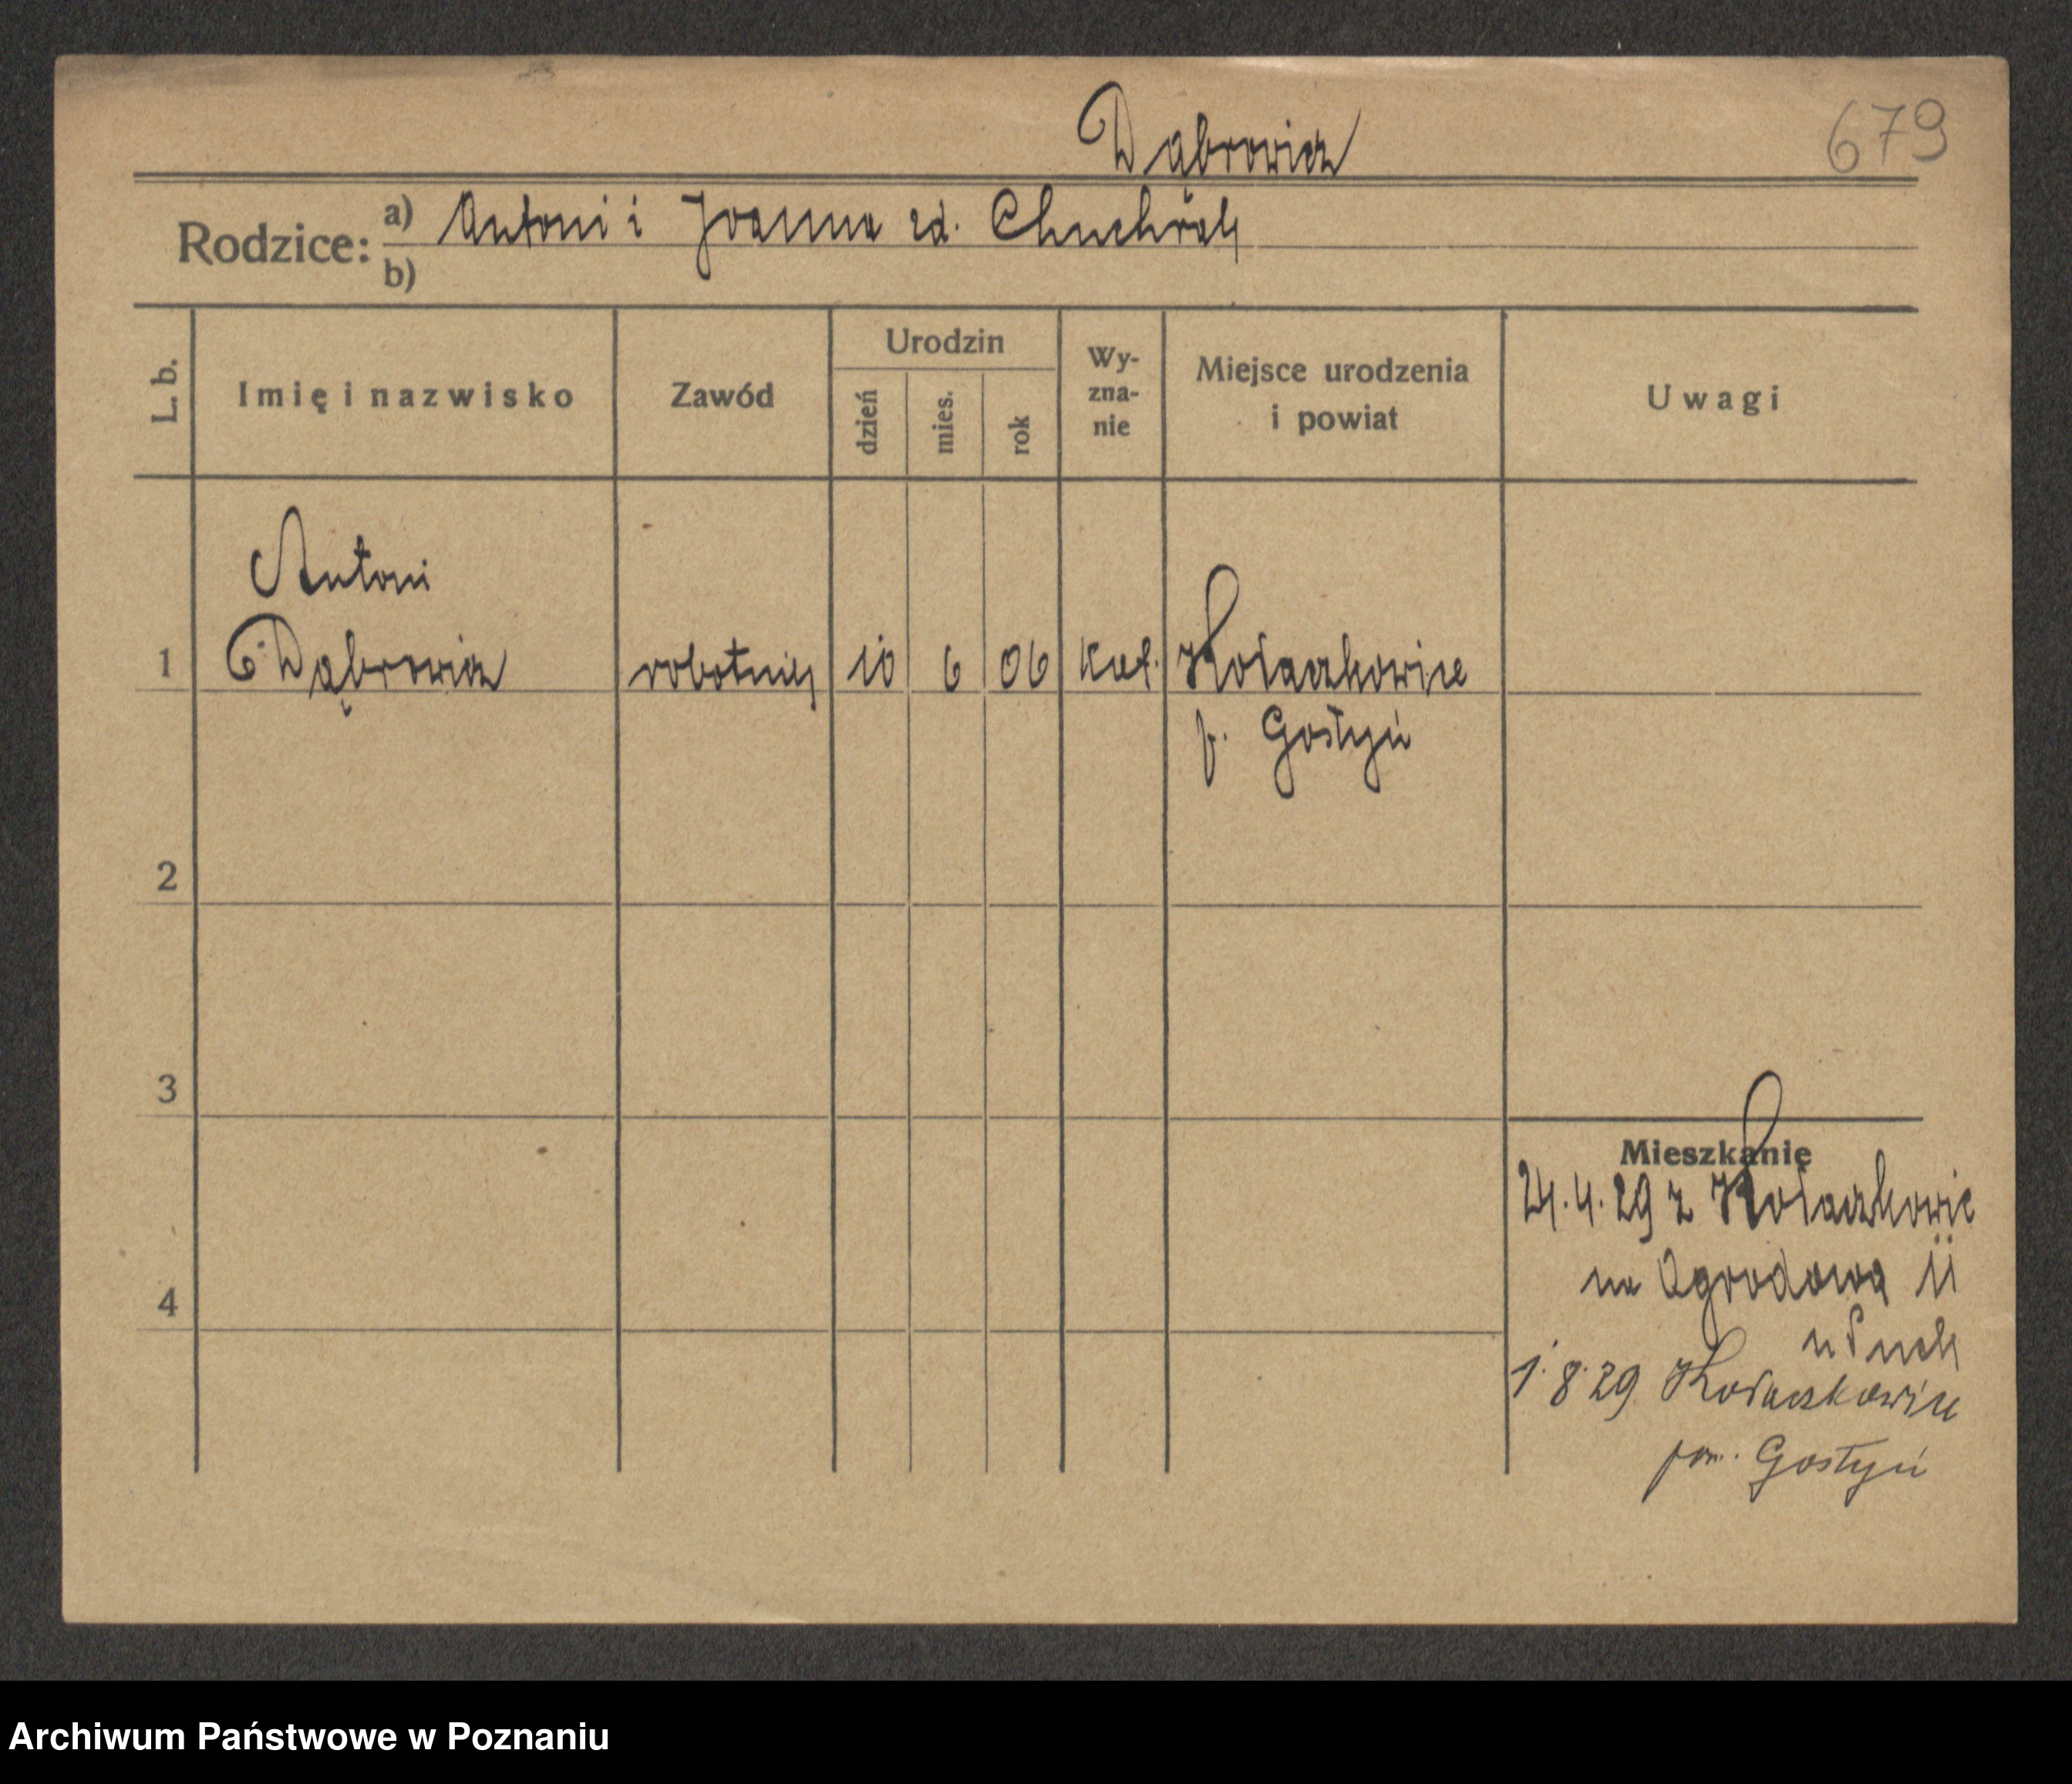 Dąbrowicz
679
Rodzice: a) Antoni i Joanna zd.
b)
L. b. Imię i nazwisko Zawód Urodzin dzień mies. rok Wy-zna-nie Miejsce urodzenia i powiat Uwagi
Antoni
1 Dąbrowicz robotnik 10 6 06 kat. Kołaczkowice
p. Gostyń
2
3
Mieszkanie
24.4.29 z Kołaczkowic
na Ogrodową 11
4
1.8.29 Kołaczkowice
pow. Gostyń
Archiwum Państwowe w Poznaniu